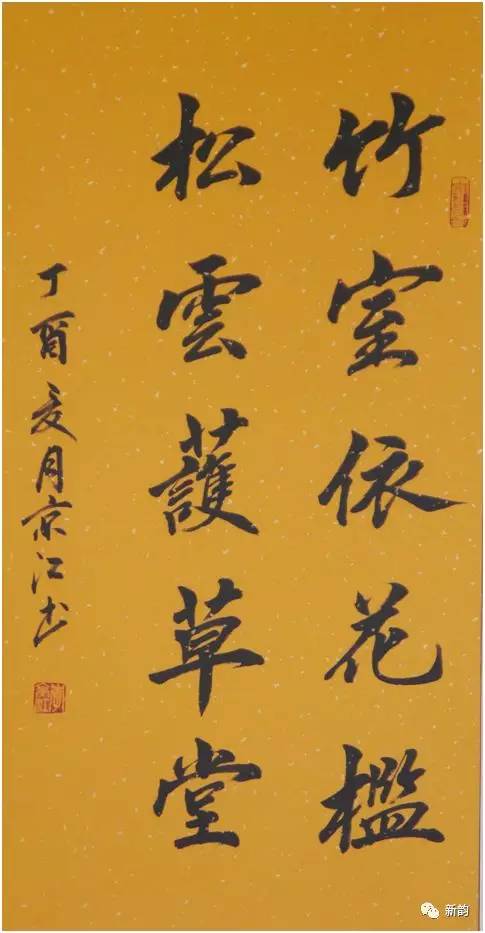 竹室依花檻
松雲護草堂
丁酉夏月京江书
新韵